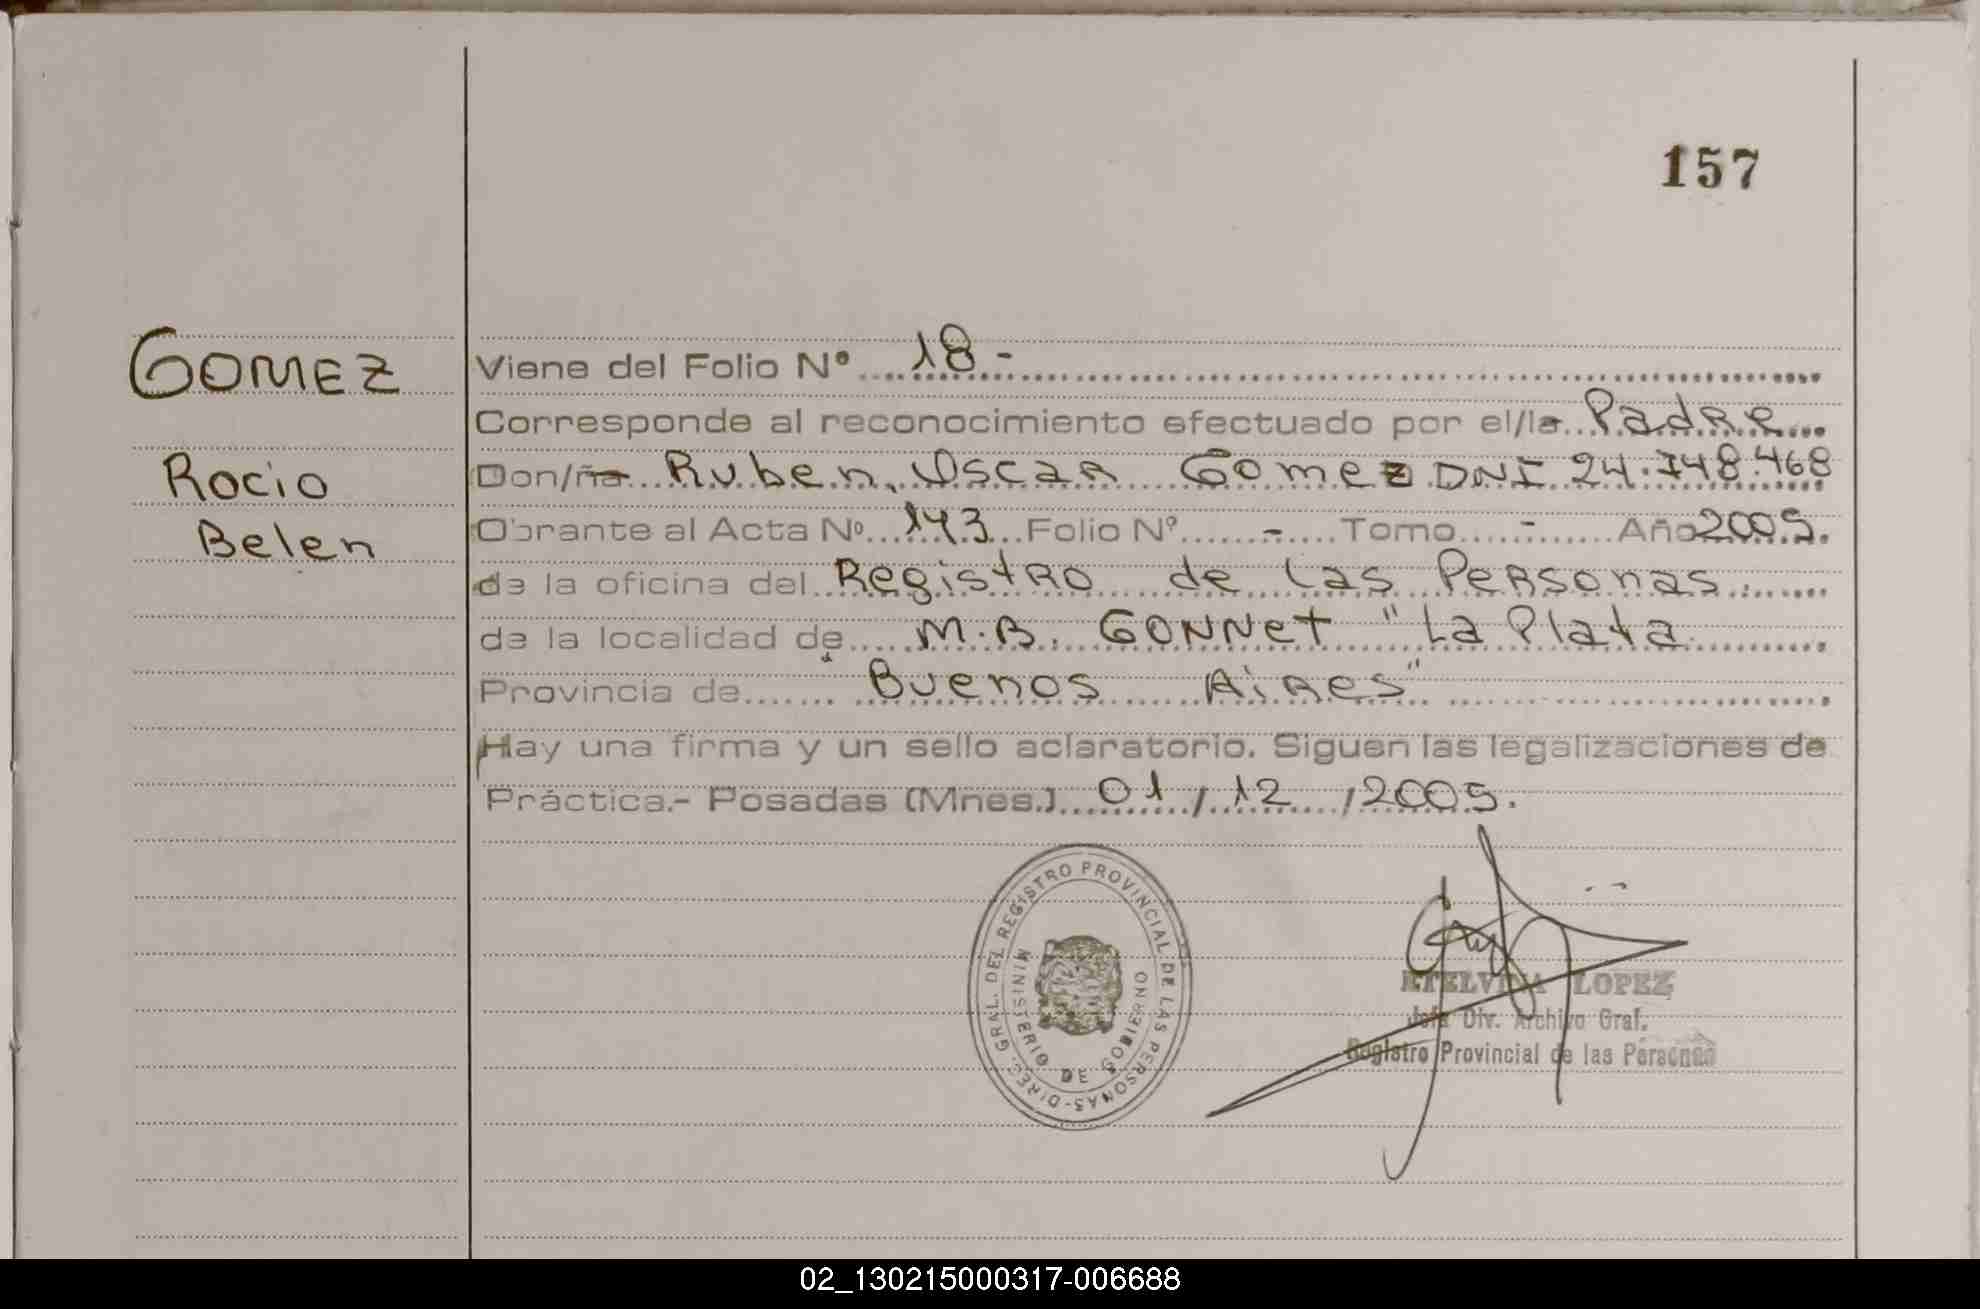 157
GOMEZ
Rocio
Belen
Viene del Folio Nº 18 -
Corresponde al reconocimiento efectuado por el/la Padre
Don/ña Ruben Oscar Gomez DNI 24.748.468
Obrante al Acta Nº 143 Folio Nº - Tomo - Año 2005.
de la oficina del Registro de las Personas
de la localidad de M.B. GONNET "La Plata
Provincia de "Buenos Aires"
Hay una firma y un sello aclaratorio. Siguen las legalizaciones de
Práctica.- Posadas (Mnes.) 01 / 12 / 2005.
DIREC. GRAL. DEL REGISTRO PROVINCIAL DE LAS PERSONAS-
MINISTERIO DE GOBIERNO
ETELVINA LOPEZ
Jefa Div. Archivo Gral.
Registro Provincial de las Personas
02_130215000317-006688